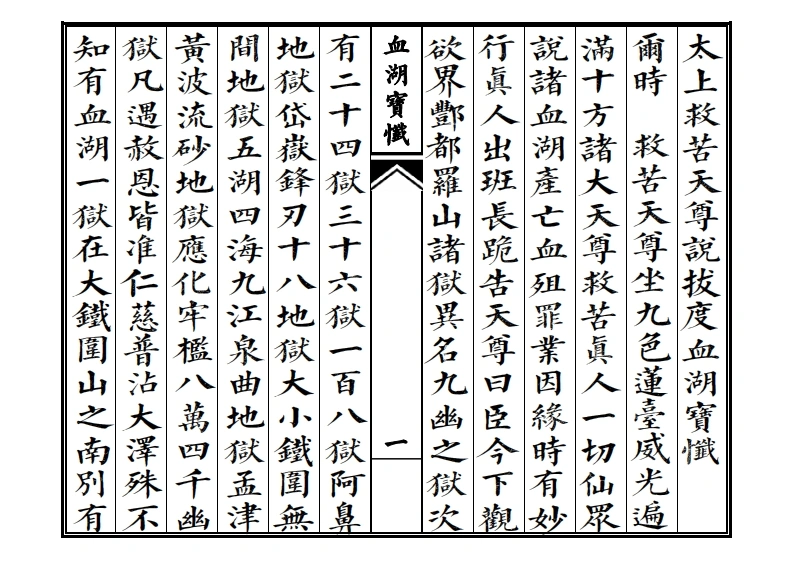 太上救苦天尊說拔度血湖寶懺
爾時 救苦天尊坐九色蓮臺威光遍
滿十方諸大天尊救苦眞人一切仙眾
說諸血湖產亡血殂罪業因緣時有妙
行眞人出班長跪告天尊曰臣今下觀
欲界酆都羅山諸獄異名九幽之獄次
血湖寶懺
一
有二十四獄三十六獄一百八獄阿鼻
地獄岱嶽鋒刃十八地獄大小鐵圍無
間地獄五湖四海九江泉曲地獄孟津
黃波流砂地獄應化牢檻八萬四千幽
獄凡遇赦恩皆准仁慈普沾大澤殊不
知有血湖一獄在大鐵圍山之南別有